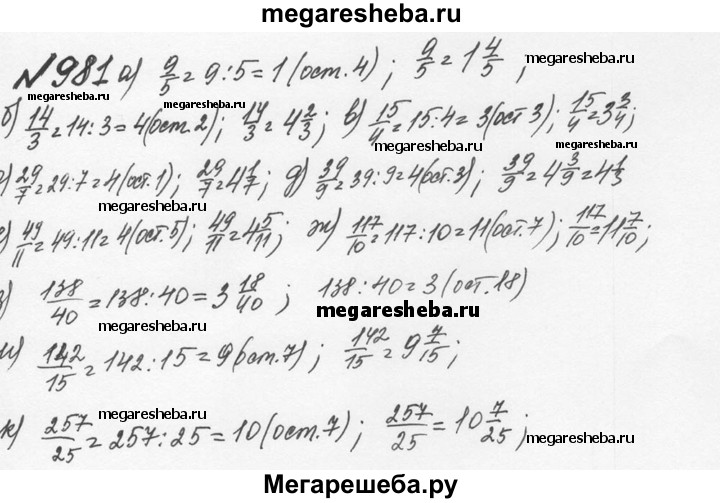 megaresheba.ru
№981 а) 9/5 = 9:5 = 1 (ост. 4); 9/5 = 1 4/5;
megaresheba.ru
megaresheba.ru megaresheba.ru
б) 14/3 = 14:3 = 4 (ост. 2); 14/3 = 4 2/3; в) 15/4 = 15:4 = 3 (ост 3); 15/4 = 3 3/4;
megaresheba.ru
) 29/7 = 29:7 = 4 (ост. 1); 29/7 = 4 1/7; д) 39/9 = 39:9 = 4 (ост. 3); 39/9 = 4 3/9 = 4 1/3
megaresheba.ru
) 49/11 = 49:11 = 4 (ост. 5); 49/11 = 4 5/11; ж) 117/10 = 117:10 = 11 (ост. 7); 117/10 = 11 7/10;
megaresheba.ru
) 138/40 = 138:40 = 3 18/40; 138:40 = 3 (ост. 18)
megaresheba.ru megaresheba.ru
и) 142/15 = 142:15 = 9 (ост. 7); 142/15 = 9 7/15;
megaresheba.ru
к) 257/25 = 257:25 = 10 (ост. 7); 257/25 = 10 7/25;
megaresheba.ru
Мегарешеба.ру